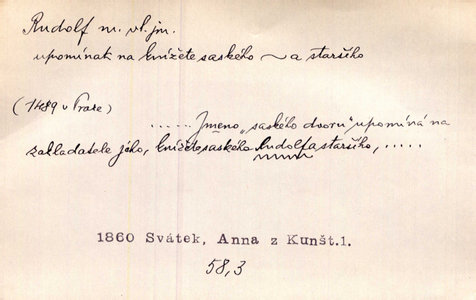 Rudolf m. vl. jm.
upomínat na knížete saského ~a staršího
(1489 v Praze)
..... Jméno „saského dvoru“ upomíná na
zakladatele jeho, knížete saského Rudolfa staršího, .....
1860 Svátek, Anna z Kunšt.1.
58,3